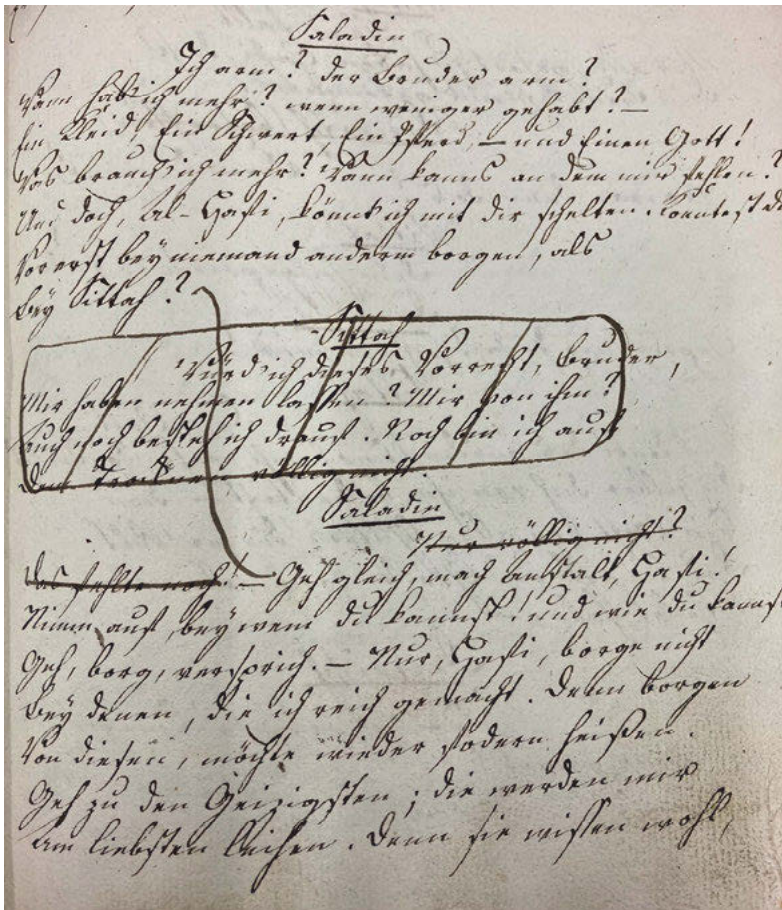 Saladin
Ich arm? der Bruder arm?
Wann hab' ich mehr? wenn weniger gehabt? —
Ein Kleid, Ein Schwert, Ein Pferd, — und Einen Gott!
Was brauch' ich mehr? Wann kanns an dem mir fehlen?
Und doch, Al-Hafi, könnt' ich mit dir schelten. Konntest du
Vorerst bey niemand anderm borgen, als
Bey Sittah?
Sittah
Würd' ich dieses Vorrecht, Bruder,
Mir haben nehmen lassen? Mir von ihm?
Auch noch besteh' ich drauf. Noch bin ich auf
dem Trocknen völlig nicht.
Saladin
Nur völlig nicht?
Das fehlte noch! — Geh gleich, mach Anstalt, Hafi!
Nimm auf, bey wem du kannst! und wie du kannst
Geh, borg, versprich. — Nur, Hafi, borge nicht
Bey denen, die ich reich gemacht. Denn borgen
Von diesen, möchte wieder fodern heißen.
Geh zu den Geizigsten; die werden mir
Am liebsten leihen. Denn sie wissen wohl,